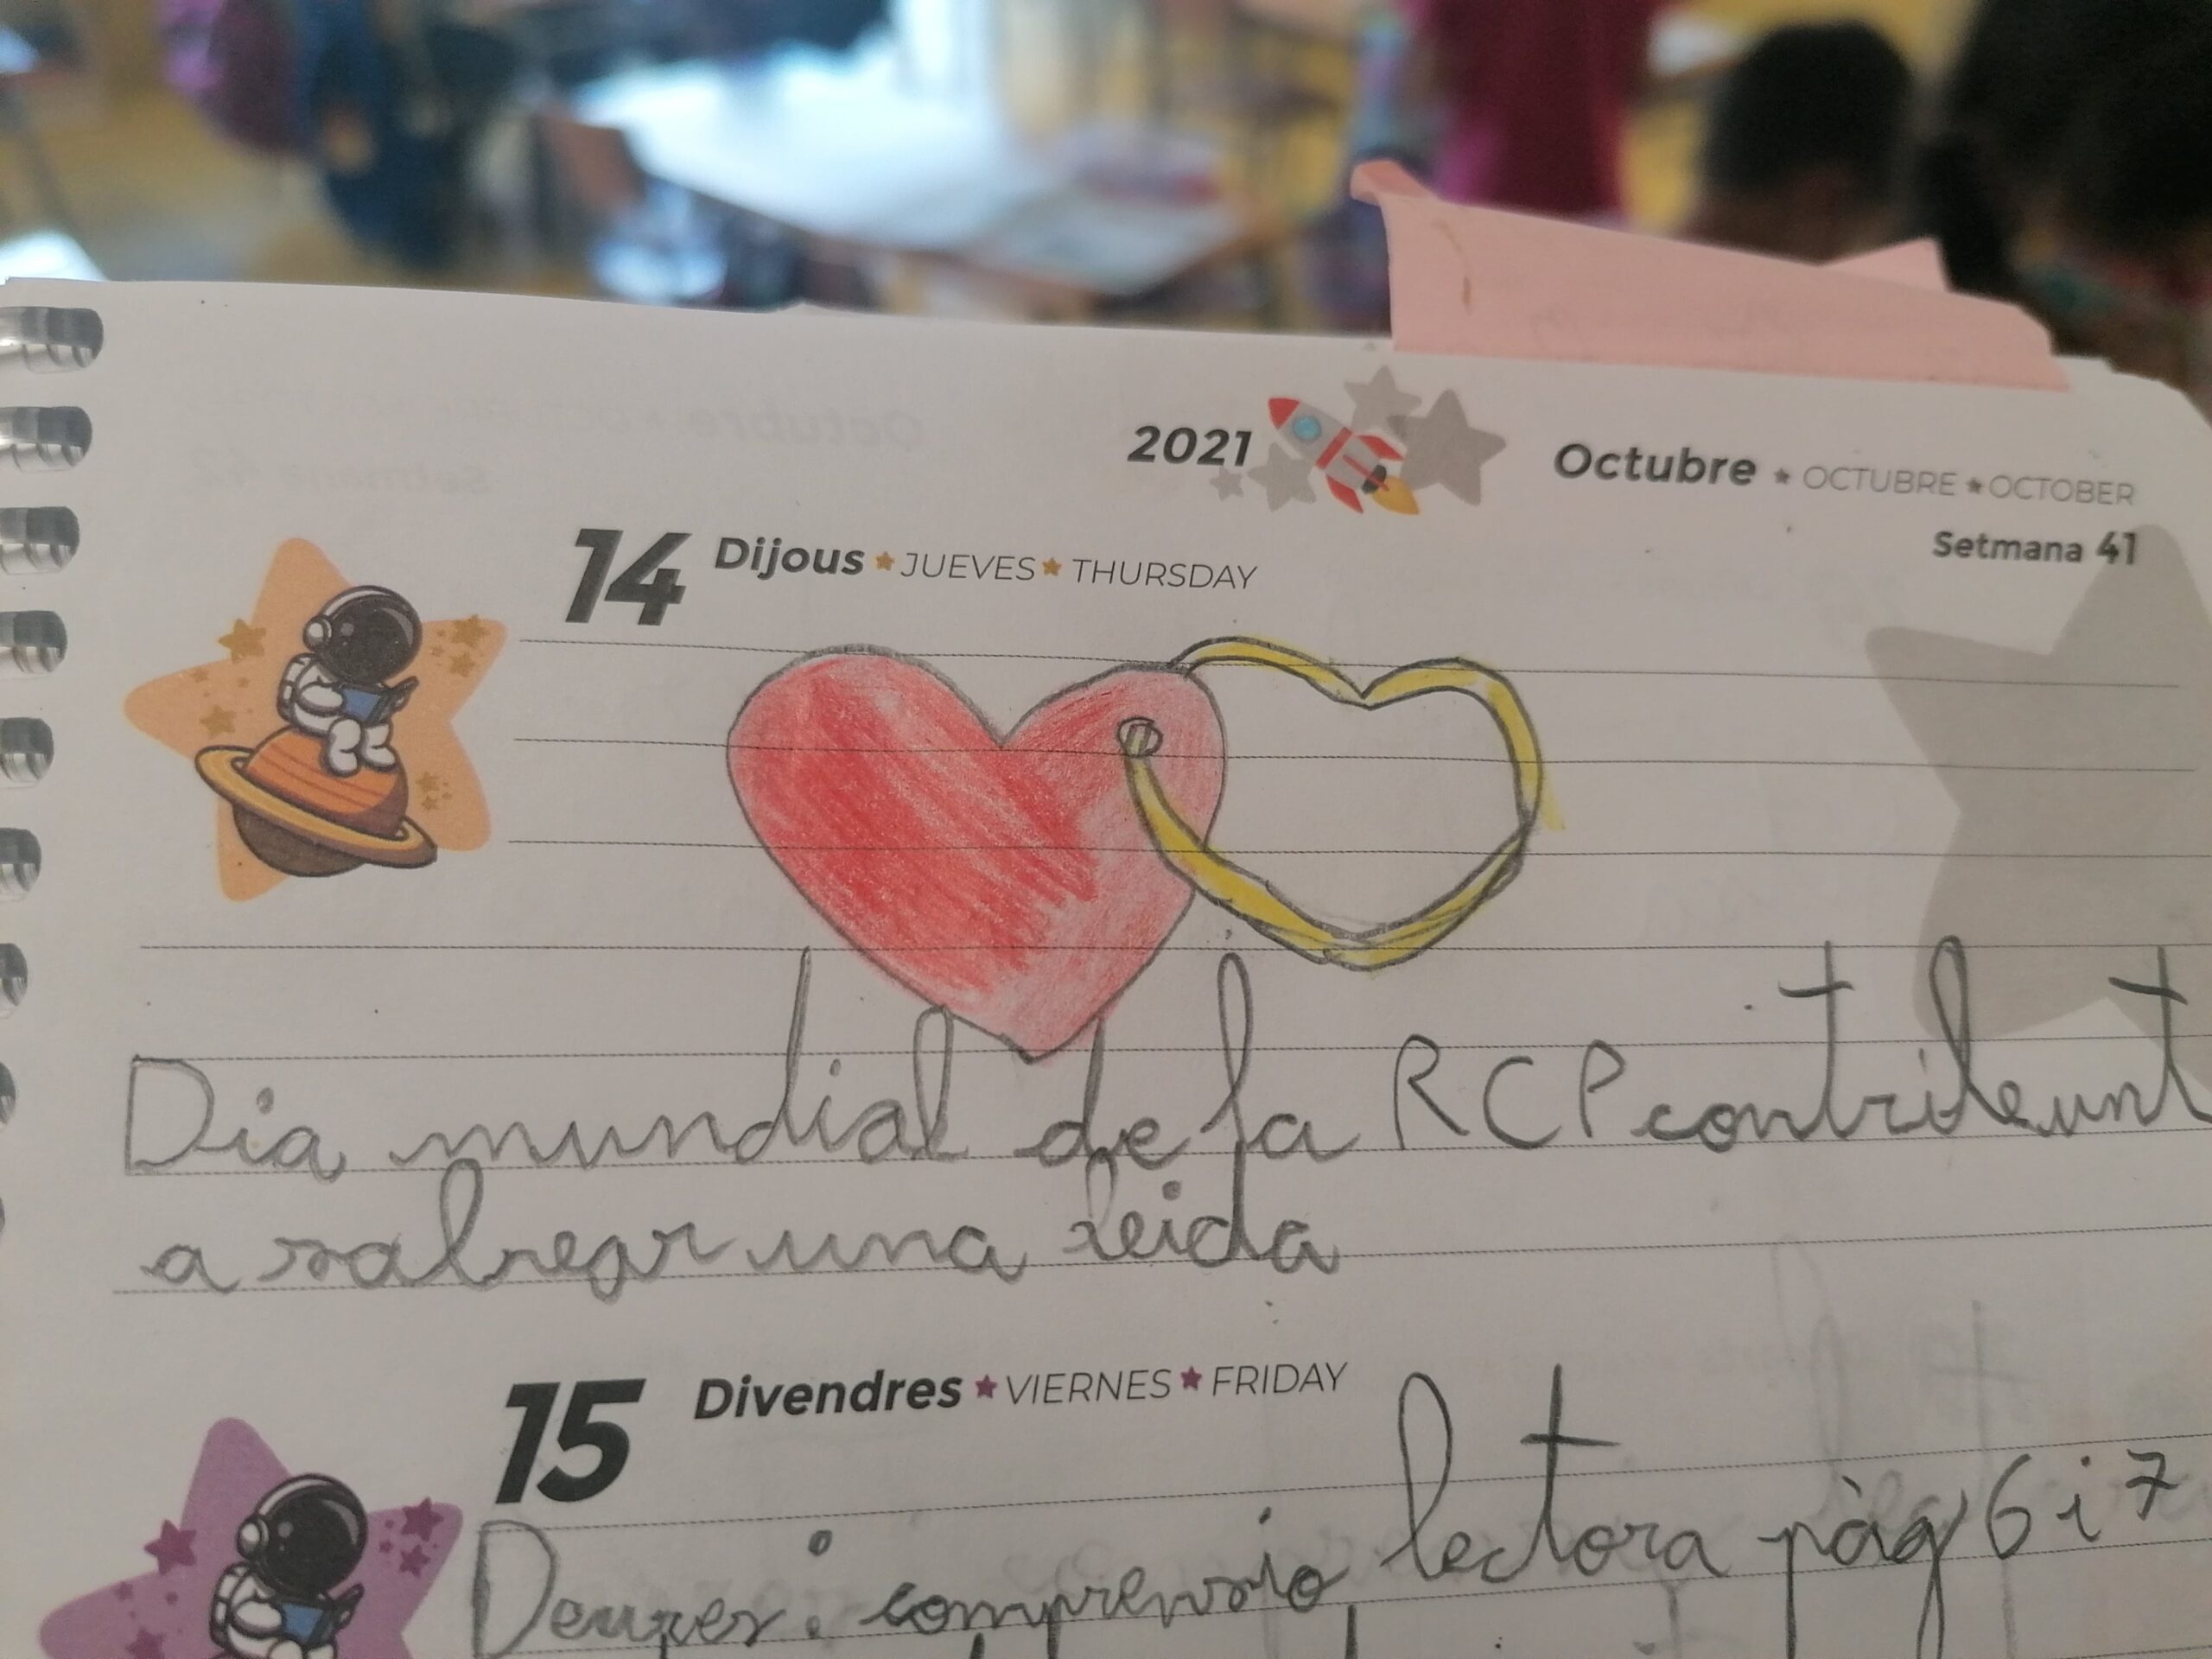 2021 Octubre ★ OCTUBRE ★ OCTOBER
Setmana 41
14 Dijous ★ JUEVES ★ THURSDAY
Dia mundial de la RCP contribuint
a salvar una
15 Divendres ★ VIERNES ★ FRIDAY
Deures: comprensio lectora pàg 6 i 7